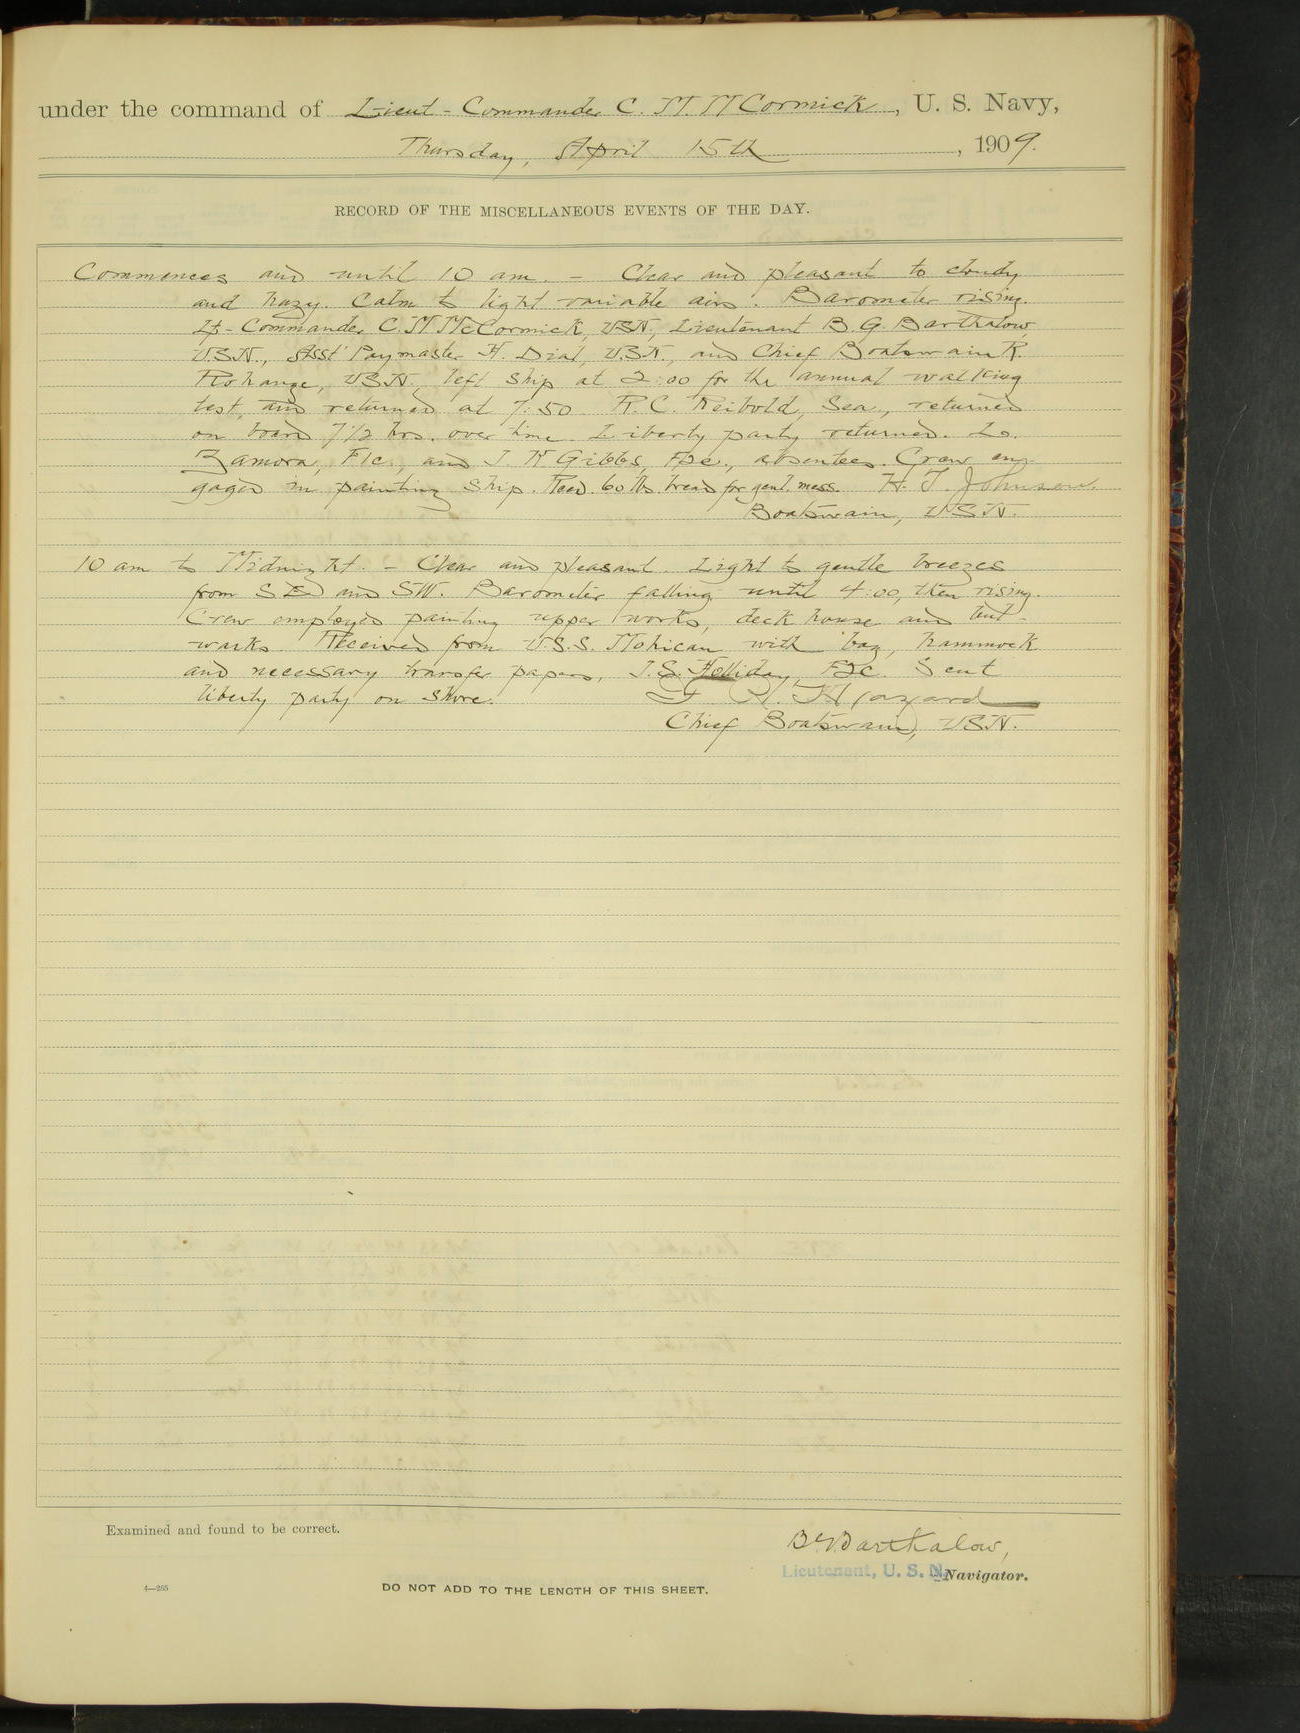 under the command of Lieut-Commander C. M. McCormick, U. S. Navy,
Thursday, April 15th, 1909.
RECORD OF THE MISCELLANEOUS EVENTS OF THE DAY.
Commences and until 10 am. - Clear and pleasant to cloudy
and hazy. Calm to light variable airs. Barometer rising.
Lt-Commander C. M. McCormick, USN., Lieutenant B. G. Barthalow,
U.S.N., Asst Paymaster H. Dial, U.S.N., and Chief Boatswain R.
Rohange, USN., left ship at 2:00 for the annual walking
test, and returned at 7:50. R. C. Reibold, Sea., returned
on board 7 1/2 hrs. over time. Liberty party returned. Lo.
Zamora, F1c., and J. N Gibbs, F2c., absentees. Crew en-
gaged in painting ship. Recd. 60 lbs bread for genl. mess. H. J. Johnson.
Boatswain, USN.
10 am to Midnight. - Clear and pleasant. Light to gentle breezes
from SE and SW. Barometer falling until 4:00, then rising.
Crew employed painting upper works, deck house and bul-
warks. Received from U.S.S. Mohican with bag, hammock
and necessary transfer papers, J. S. Holliday, F2c. Sent
liberty party on shore. Hazard
Chief Boatswain, USN.
Examined and found to be correct.
B G Barthalow,
Lieutenant, U. S. N. Navigator.
4—265
DO NOT ADD TO THE LENGTH OF THIS SHEET.